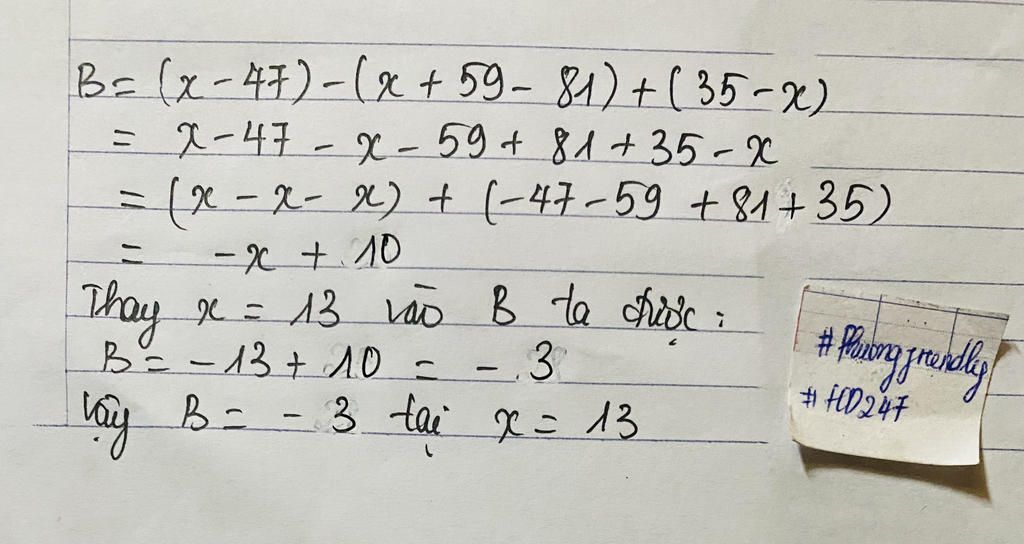 B = (x - 47) - (x + 59 - 81) + (35 - x)
= x - 47 - x - 59 + 81 + 35 - x
= (x - x - x) + (-47 - 59 + 81 + 35)
= -x + 10
Thay x = 13 vào B ta được:
B = -13 + 10 = -3
Vậy B = -3 tại x = 13
#Phuongfriendly
#HD247